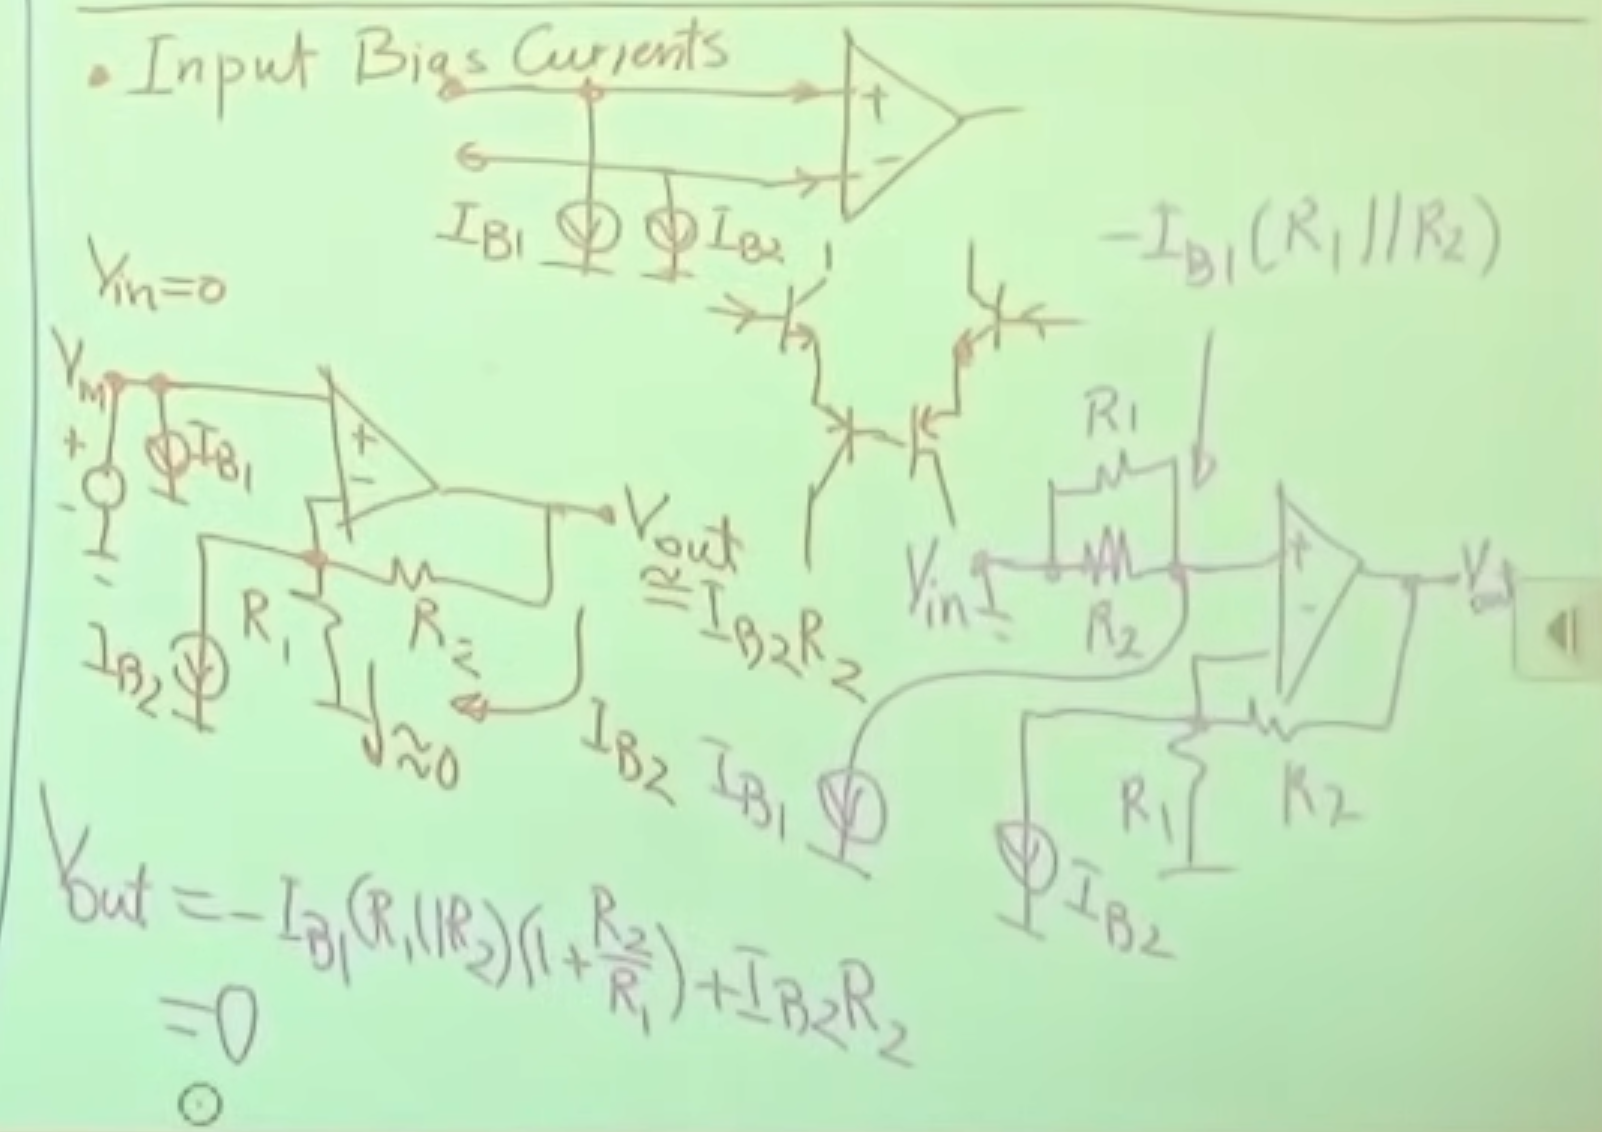 • Input Bias Currents
+
-
I_B1
I_B2
-I_B1 (R_1 || R_2)
V_in = 0
V_in
+
-
I_B1
+
-
V_out
≅ I_B2 R_2
R_1
R_2
I_B2
≈0
I_B2
R_1
V_in
R_2
+
-
V_out
I_B1
R_1
R_2
I_B2
V_out = - I_B1 (R_1 || R_2) (1 + R_2/R_1) + I_B2 R_2
= 0